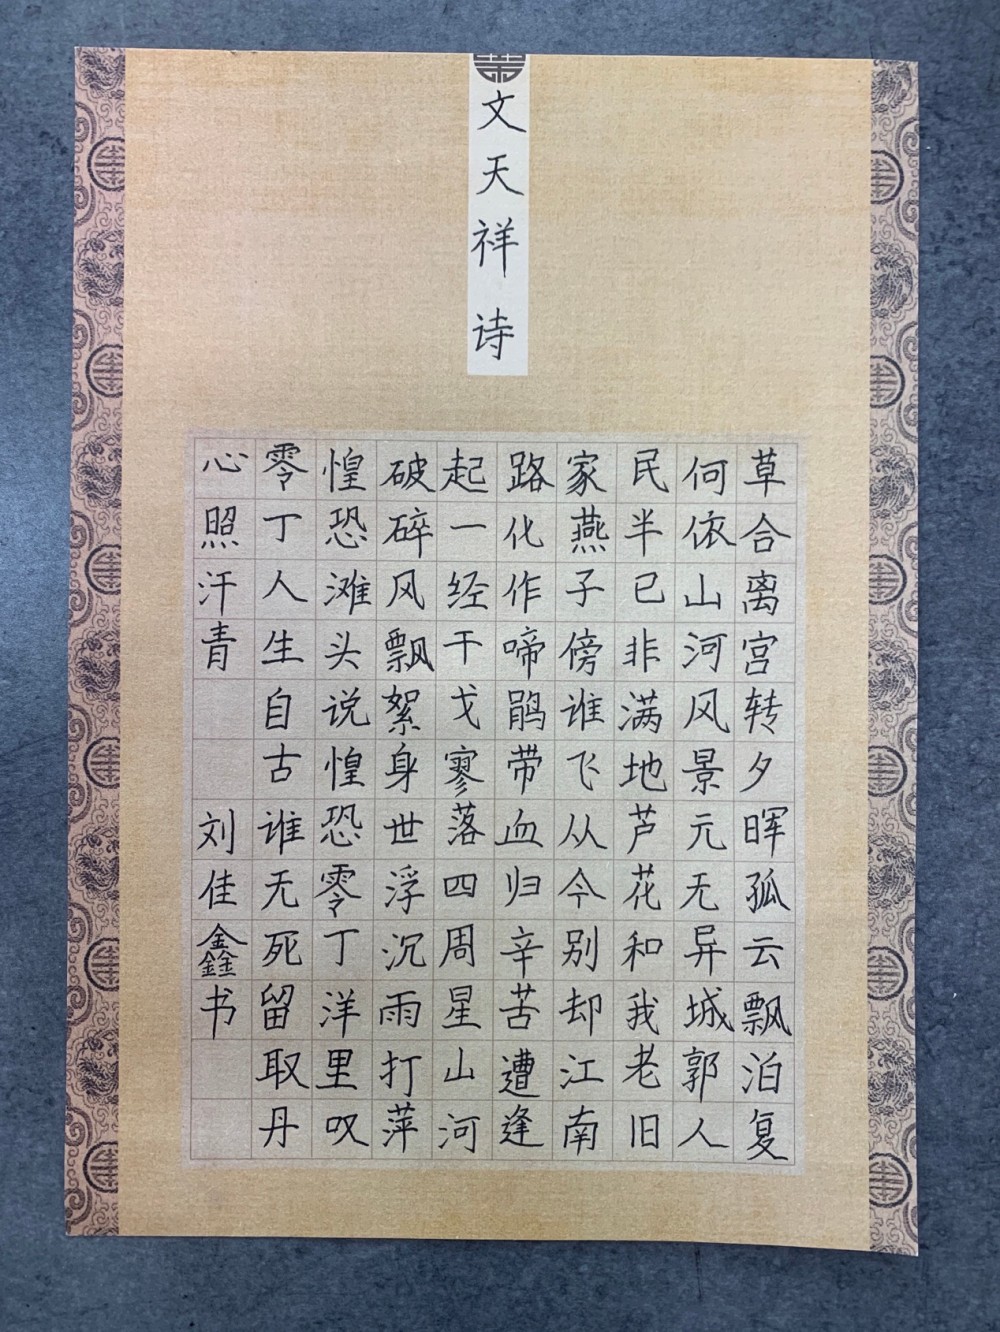 文天祥诗
草合离宫转夕晖孤云飘泊复
何依山河风景元无异城郭人
民半已非满地芦花和我老旧
家燕子傍谁飞从今别却江南
路化作啼鹃带血归辛苦遭逢
起一经干戈寥落四周星山河
破碎风飘絮身世浮沉雨打萍
惶恐滩头说惶恐零丁洋里叹
零丁人生自古谁无死留取丹
心照汗青 刘佳鑫书